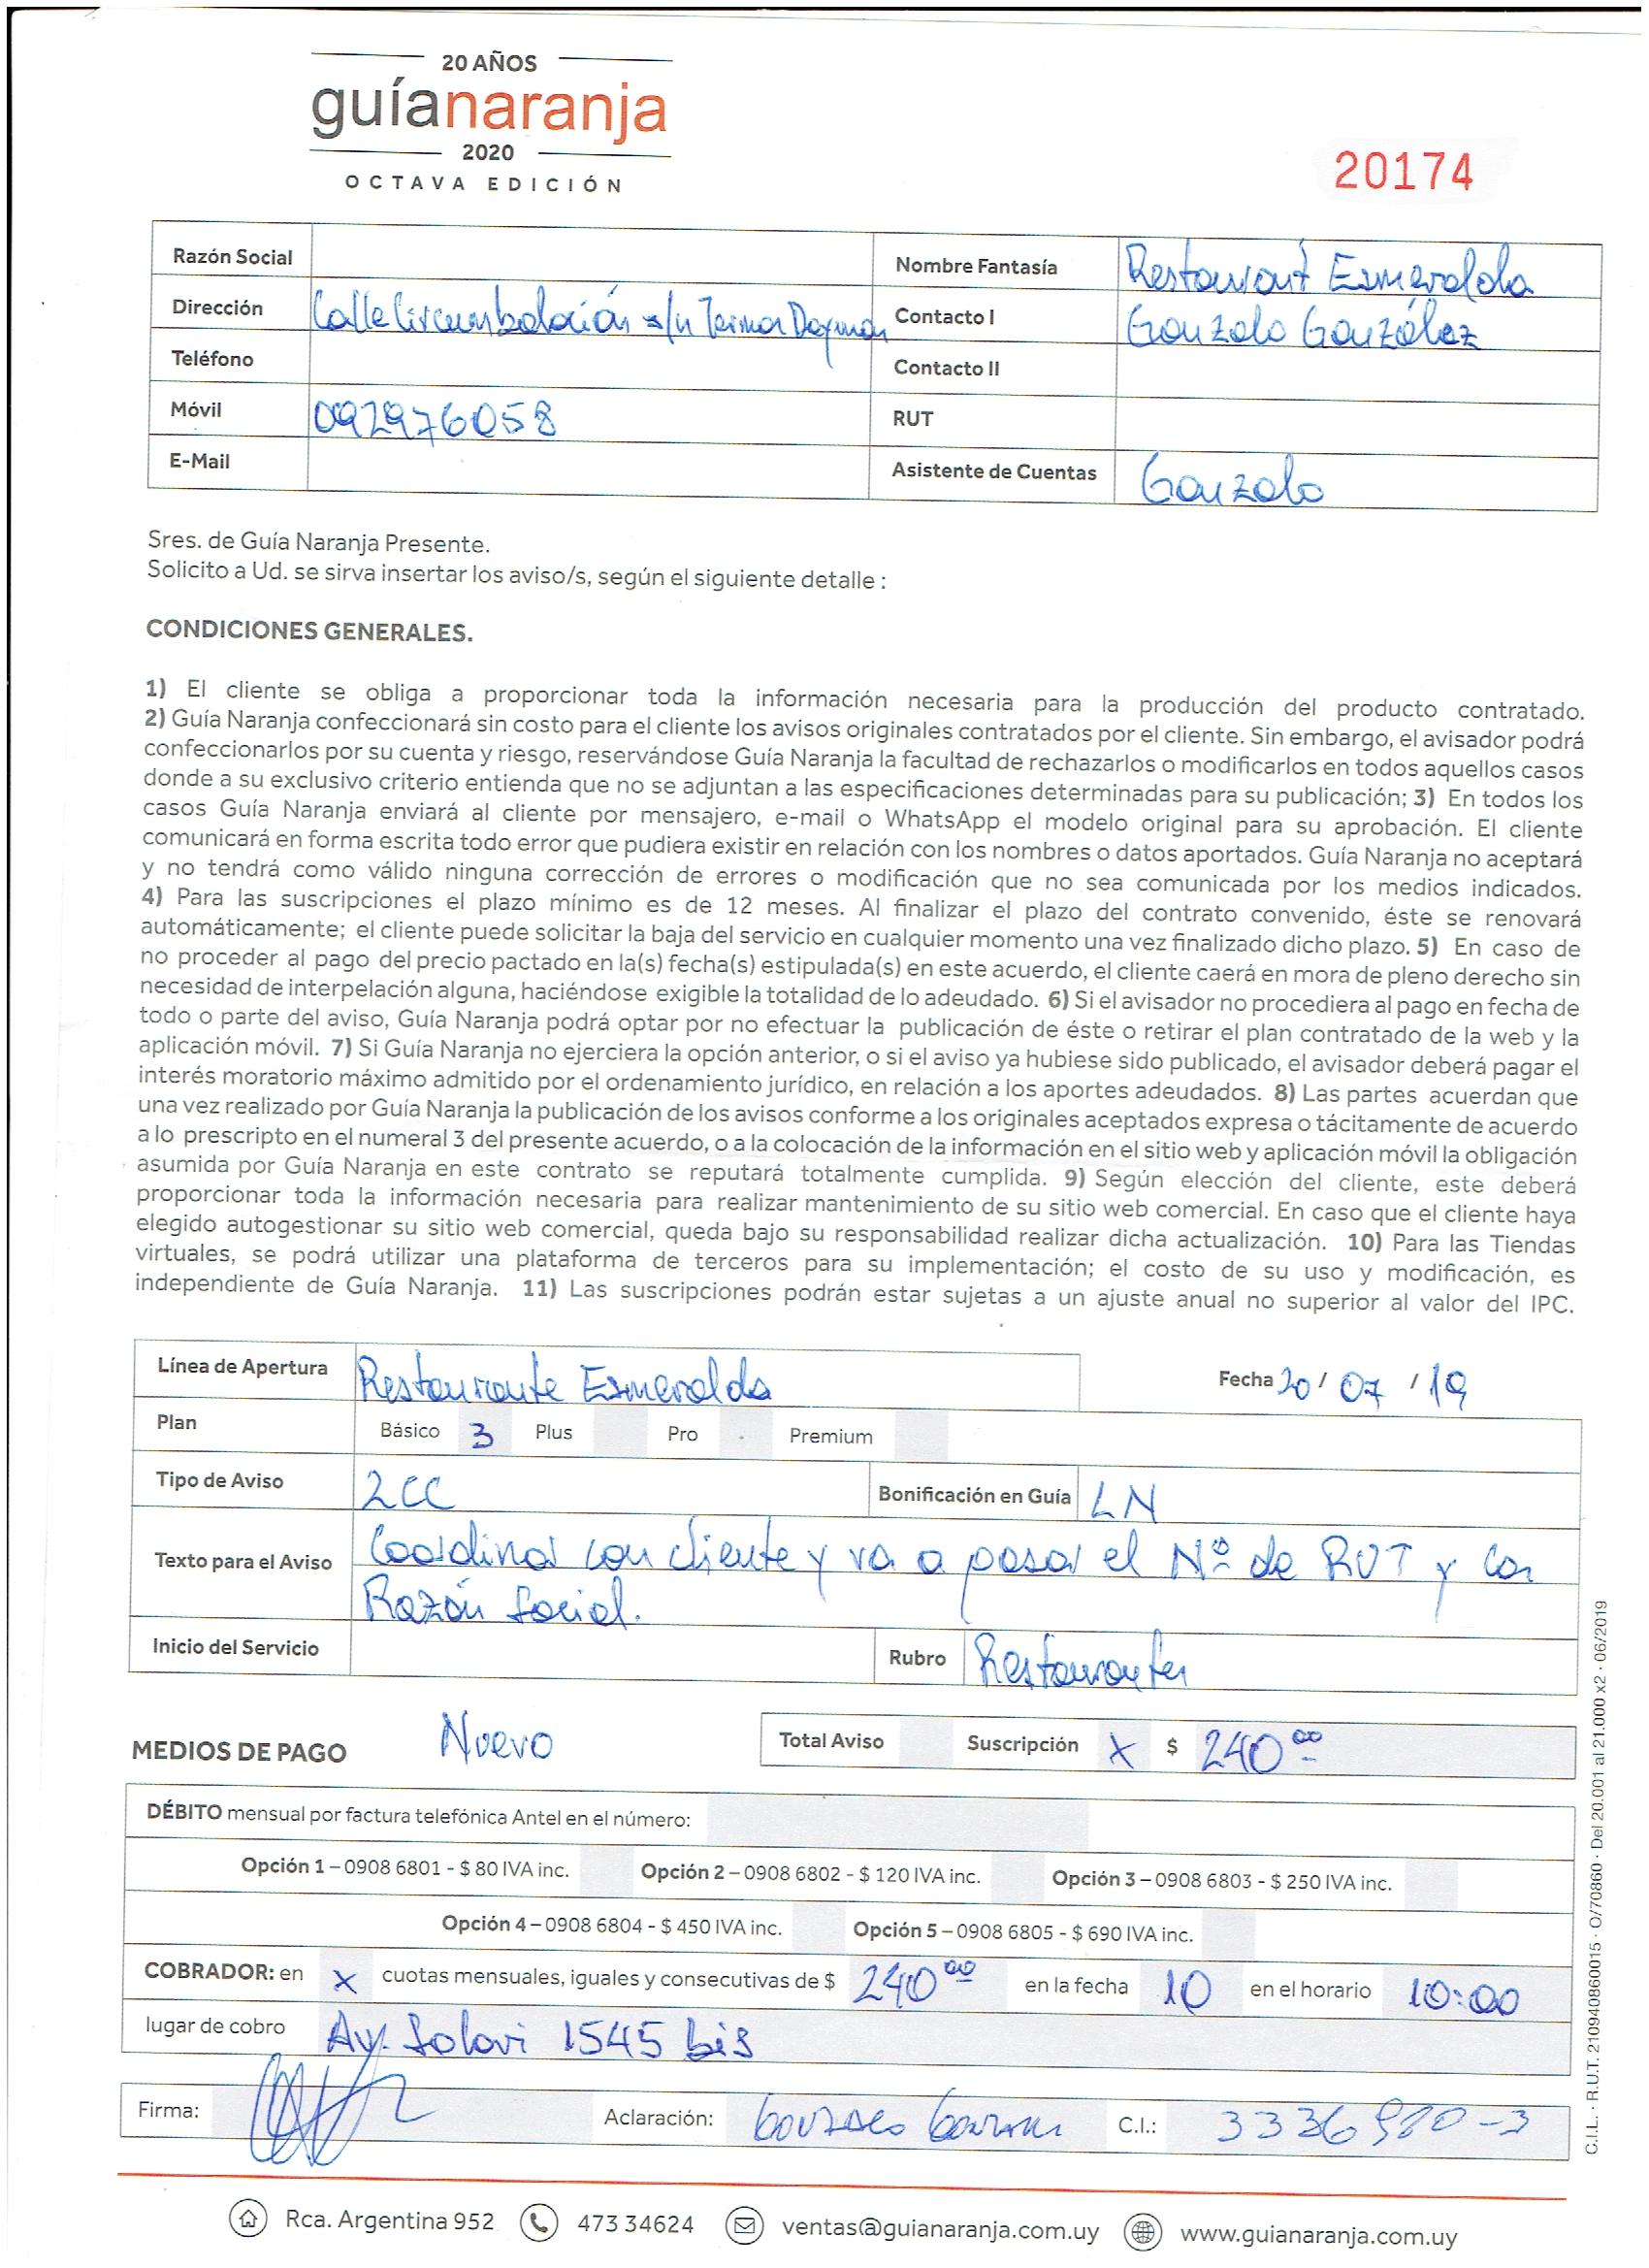 20 AÑOS
guíanaranja
2020
OCTAVA EDICIÓN
20174
Razón Social
Nombre Fantasía Restaurant Esmeralda
Dirección Calle Circumbalación s/n Termas Dayman
Contacto I Gonzalo González
Teléfono
Contacto II
Móvil 092976058
RUT
E-Mail
Asistente de Cuentas Gonzalo
Sres. de Guía Naranja Presente.
Solicito a Ud. se sirva insertar los aviso/s, según el siguiente detalle :
CONDICIONES GENERALES.
1) El cliente se obliga a proporcionar toda la información necesaria para la producción del producto contratado.
2) Guía Naranja confeccionará sin costo para el cliente los avisos originales contratados por el cliente. Sin embargo, el avisador podrá
confeccionarlos por su cuenta y riesgo, reservándose Guía Naranja la facultad de rechazarlos o modificarlos en todos aquellos casos
donde a su exclusivo criterio entienda que no se adjuntan a las especificaciones determinadas para su publicación; 3) En todos los
casos Guía Naranja enviará al cliente por mensajero, e-mail o WhatsApp el modelo original para su aprobación. El cliente
comunicará en forma escrita todo error que pudiera existir en relación con los nombres o datos aportados. Guía Naranja no aceptará
y no tendrá como válido ninguna corrección de errores o modificación que no sea comunicada por los medios indicados.
4) Para las suscripciones el plazo mínimo es de 12 meses. Al finalizar el plazo del contrato convenido, éste se renovará
automáticamente; el cliente puede solicitar la baja del servicio en cualquier momento una vez finalizado dicho plazo. 5) En caso de
no proceder al pago del precio pactado en la(s) fecha(s) estipulada(s) en este acuerdo, el cliente caerá en mora de pleno derecho sin
necesidad de interpelación alguna, haciéndose exigible la totalidad de lo adeudado. 6) Si el avisador no procediera al pago en fecha de
todo o parte del aviso, Guía Naranja podrá optar por no efectuar la publicación de éste o retirar el plan contratado de la web y la
aplicación móvil. 7) Si Guía Naranja no ejerciera la opción anterior, o si el aviso ya hubiese sido publicado, el avisador deberá pagar el
interés moratorio máximo admitido por el ordenamiento jurídico, en relación a los aportes adeudados. 8) Las partes acuerdan que
una vez realizado por Guía Naranja la publicación de los avisos conforme a los originales aceptados expresa o tácitamente de acuerdo
a lo prescripto en el numeral 3 del presente acuerdo, o a la colocación de la información en el sitio web y aplicación móvil la obligación
asumida por Guía Naranja en este contrato se reputará totalmente cumplida. 9) Según elección del cliente, este deberá
proporcionar toda la información necesaria para realizar mantenimiento de su sitio web comercial. En caso que el cliente haya
elegido autogestionar su sitio web comercial, queda bajo su responsabilidad realizar dicha actualización. 10) Para las Tiendas
virtuales, se podrá utilizar una plataforma de terceros para su implementación; el costo de su uso y modificación, es
independiente de Guía Naranja. 11) Las suscripciones podrán estar sujetas a un ajuste anual no superior al valor del IPC.
Línea de Apertura Restaurante Esmeralda
Fecha 20 / 07 / 19
Plan Básico 3 Plus Pro Premium
Tipo de Aviso 2CC
Bonificación en Guía LN
Texto para el Aviso Coordinar con cliente y va a pasar el Nº de RUT y la
Razón Social.
Inicio del Servicio
Rubro Restaurantes
MEDIOS DE PAGO Nuevo
Total Aviso Suscripción X $ 240 00
DÉBITO mensual por factura telefónica Antel en el número:
Opción 1 – 0908 6801 - $ 80 IVA inc. Opción 2 – 0908 6802 - $ 120 IVA inc. Opción 3 – 0908 6803 - $ 250 IVA inc.
Opción 4 – 0908 6804 - $ 450 IVA inc. Opción 5 – 0908 6805 - $ 690 IVA inc.
COBRADOR: en X cuotas mensuales, iguales y consecutivas de $ 240 00 en la fecha 10 en el horario 10:00
lugar de cobro Av. Solari 1545 bis
Firma: Aclaración: Gonzalo C.I.: 3336920-3
C.I.L. · R.U.T. 210940860015 · O/70860 · Del 20.001 al 21.000 x2 · 06/2019
Rca. Argentina 952 473 34624 ventas@guianaranja.com.uy www.guianaranja.com.uy